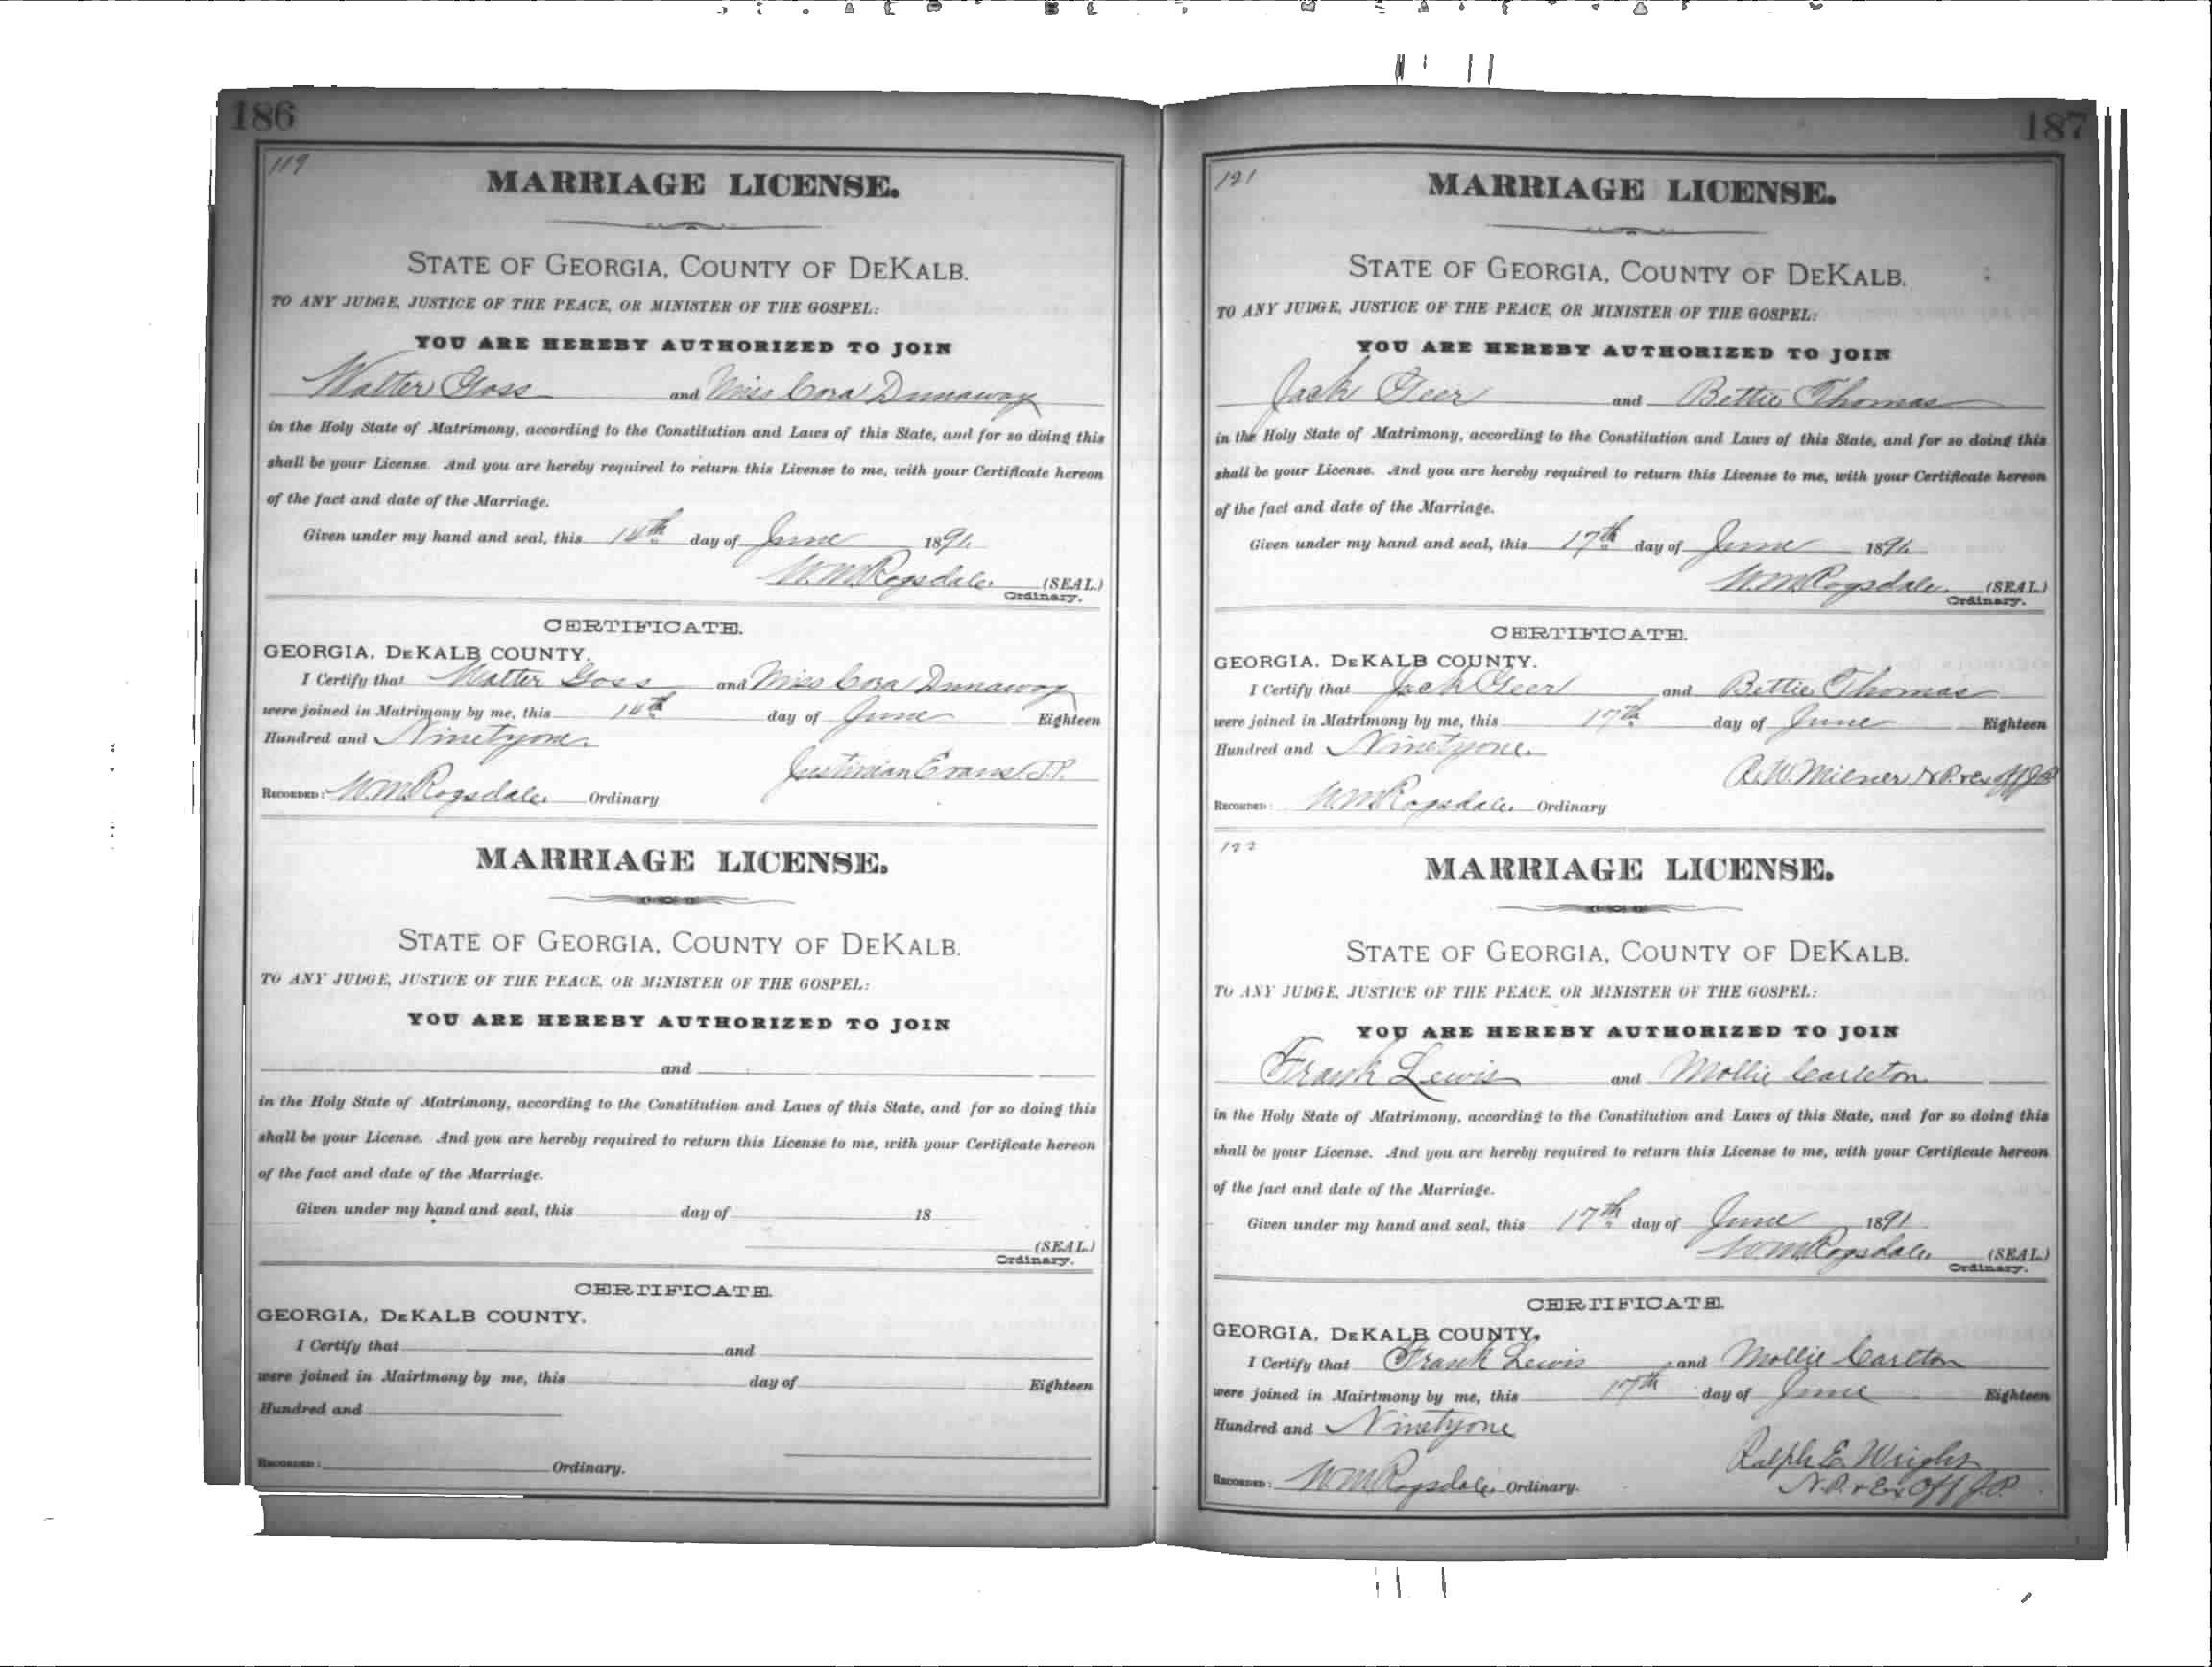 186
119
MARRIAGE LICENSE.
STATE OF GEORGIA, COUNTY OF DEKALB.
TO ANY JUDGE, JUSTICE OF THE PEACE, OR MINISTER OF THE GOSPEL:
YOU ARE HEREBY AUTHORIZED TO JOIN
Walter Goss and Miss Cora Dunaway
in the Holy State of Matrimony, according to the Constitution and Laws of this State, and for so doing this
shall be your License. And you are hereby required to return this License to me, with your Certificate hereon
of the fact and date of the Marriage.
Given under my hand and seal, this 14th day of June 1891.
W.M. Ragsdale. (SEAL.)
Ordinary.
CERTIFICATE.
GEORGIA, DEKALB COUNTY.
I Certify that Walter Goss and Miss Cora Dunaway
were joined in Matrimony by me, this 14th day of June Eighteen
Hundred and Ninetyone.
Justinian Evans J.P.
RECORDED: W.M. Ragsdale. Ordinary
MARRIAGE LICENSE.
STATE OF GEORGIA, COUNTY OF DEKALB.
TO ANY JUDGE, JUSTICE OF THE PEACE, OR MINISTER OF THE GOSPEL:
YOU ARE HEREBY AUTHORIZED TO JOIN
and
in the Holy State of Matrimony, according to the Constitution and Laws of this State, and for so doing this
shall be your License. And you are hereby required to return this License to me, with your Certificate hereon
of the fact and date of the Marriage.
Given under my hand and seal, this day of 18
(SEAL.)
Ordinary.
CERTIFICATE.
GEORGIA, DEKALB COUNTY.
I Certify that and
were joined in Mairtmony by me, this day of Eighteen
Hundred and
RECORDED: Ordinary.
187
121
MARRIAGE LICENSE.
STATE OF GEORGIA, COUNTY OF DEKALB.
TO ANY JUDGE, JUSTICE OF THE PEACE, OR MINISTER OF THE GOSPEL:
YOU ARE HEREBY AUTHORIZED TO JOIN
Jack Geer and Bettie Thomas
in the Holy State of Matrimony, according to the Constitution and Laws of this State, and for so doing this
shall be your License. And you are hereby required to return this License to me, with your Certificate hereon
of the fact and date of the Marriage.
Given under my hand and seal, this 17th day of June 1891.
W.M. Ragsdale. (SEAL.)
Ordinary.
CERTIFICATE.
GEORGIA, DEKALB COUNTY.
I Certify that Jack Geer and Bettie Thomas
were joined in Matrimony by me, this 17th day of June Eighteen
Hundred and Ninetyone.
R.W. Milner N.P. & ex off J.P.
RECORDED: W.M. Ragsdale. Ordinary
122
MARRIAGE LICENSE.
STATE OF GEORGIA, COUNTY OF DEKALB.
TO ANY JUDGE, JUSTICE OF THE PEACE, OR MINISTER OF THE GOSPEL:
YOU ARE HEREBY AUTHORIZED TO JOIN
Frank Lewis and Mollie Carleton
in the Holy State of Matrimony, according to the Constitution and Laws of this State, and for so doing this
shall be your License. And you are hereby required to return this License to me, with your Certificate hereon
of the fact and date of the Marriage.
Given under my hand and seal, this 17th day of June 1891
W.M. Ragsdale. (SEAL.)
Ordinary.
CERTIFICATE.
GEORGIA, DEKALB COUNTY.
I Certify that Frank Lewis and Mollie Carlton
were joined in Mairtmony by me, this 17th day of June Eighteen
Hundred and Ninetyone
Ralph E. Wright
N.P. & Ex Off J.P.
RECORDED: W.M. Ragsdale. Ordinary.